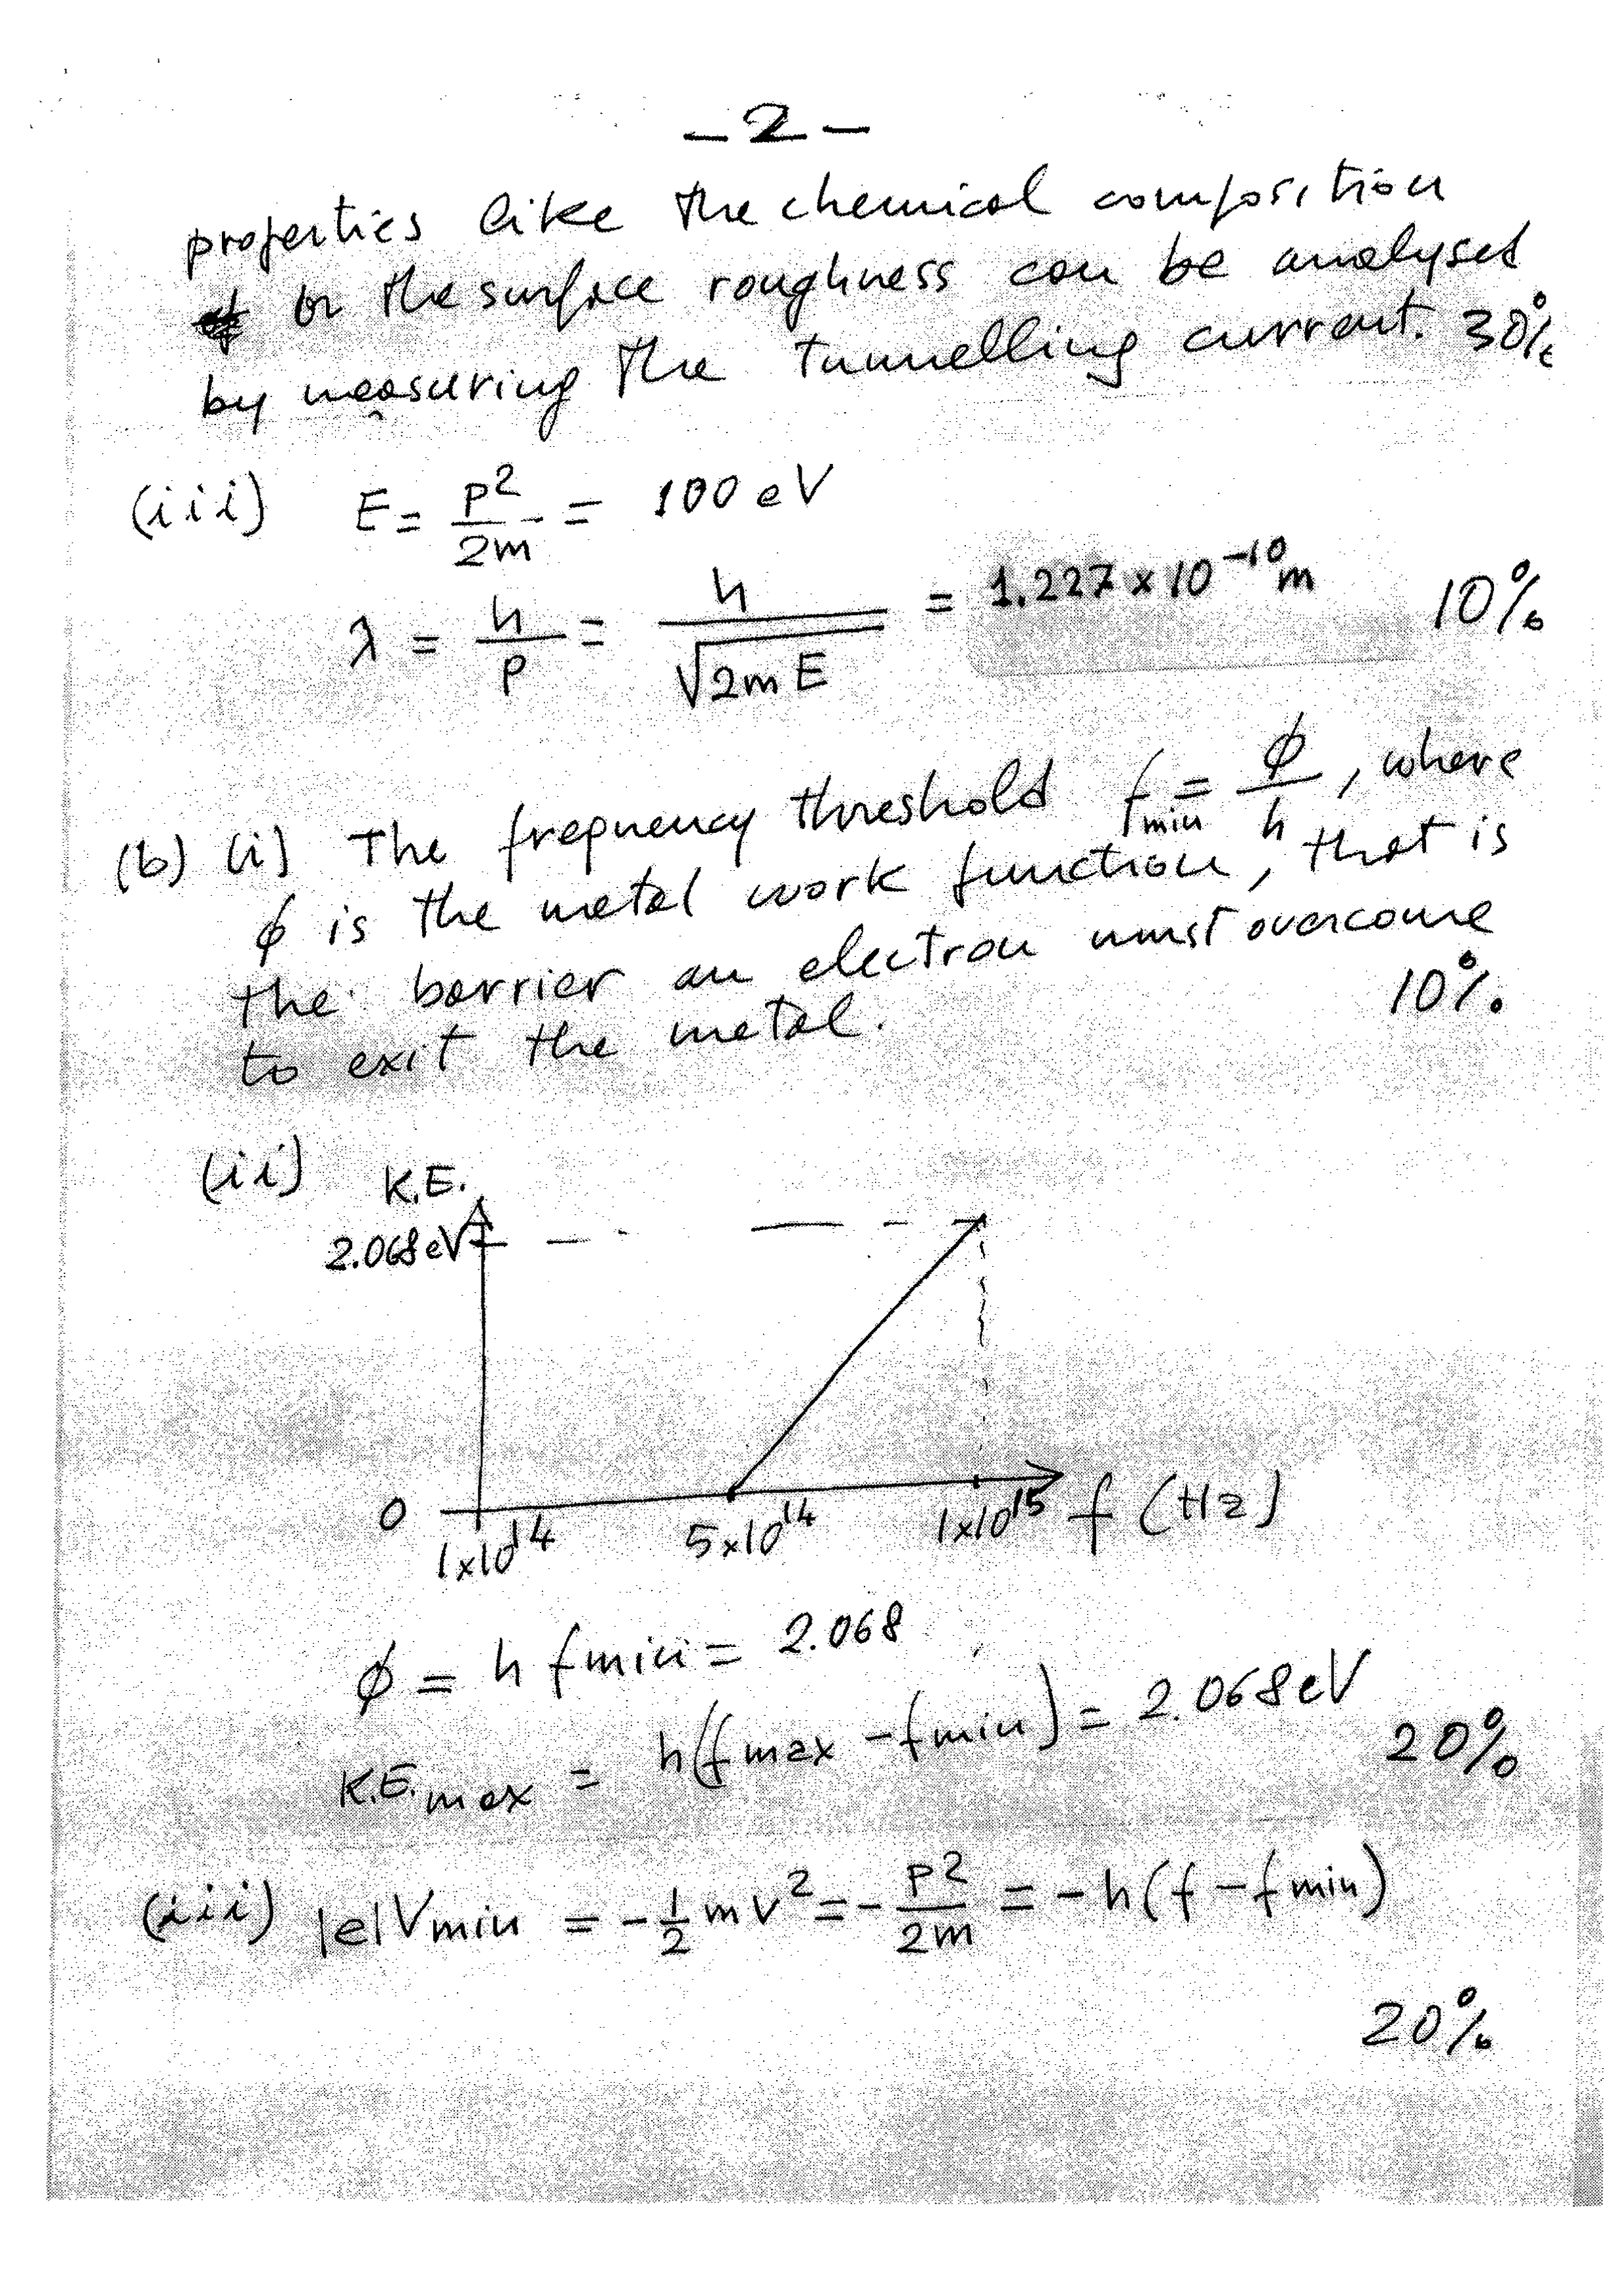 -2-
properties like the chemical composition
or the surface roughness can be analysed
by measuring the tunnelling current. 30%
(iii) E = p²/2m = 100 eV
λ = h/p = h/√(2mE) = 1.227 × 10⁻¹⁰ m 10%
(b) (i) The frequency threshold f_min = ϕ/h, where
ϕ is the metal work function, that is
the barrier an electron must overcome
to exit the metal. 10%
(ii) K.E.
2.068 eV
0
1×10¹⁴ 5×10¹⁴ 1×10¹⁵ f (Hz)
ϕ = h fmin = 2.068
K.E.max = h(fmax - fmin) = 2.068 eV 20%
(iii) |e|Vmin = -½mv² = -p²/2m = -h(f - fmin)
20%